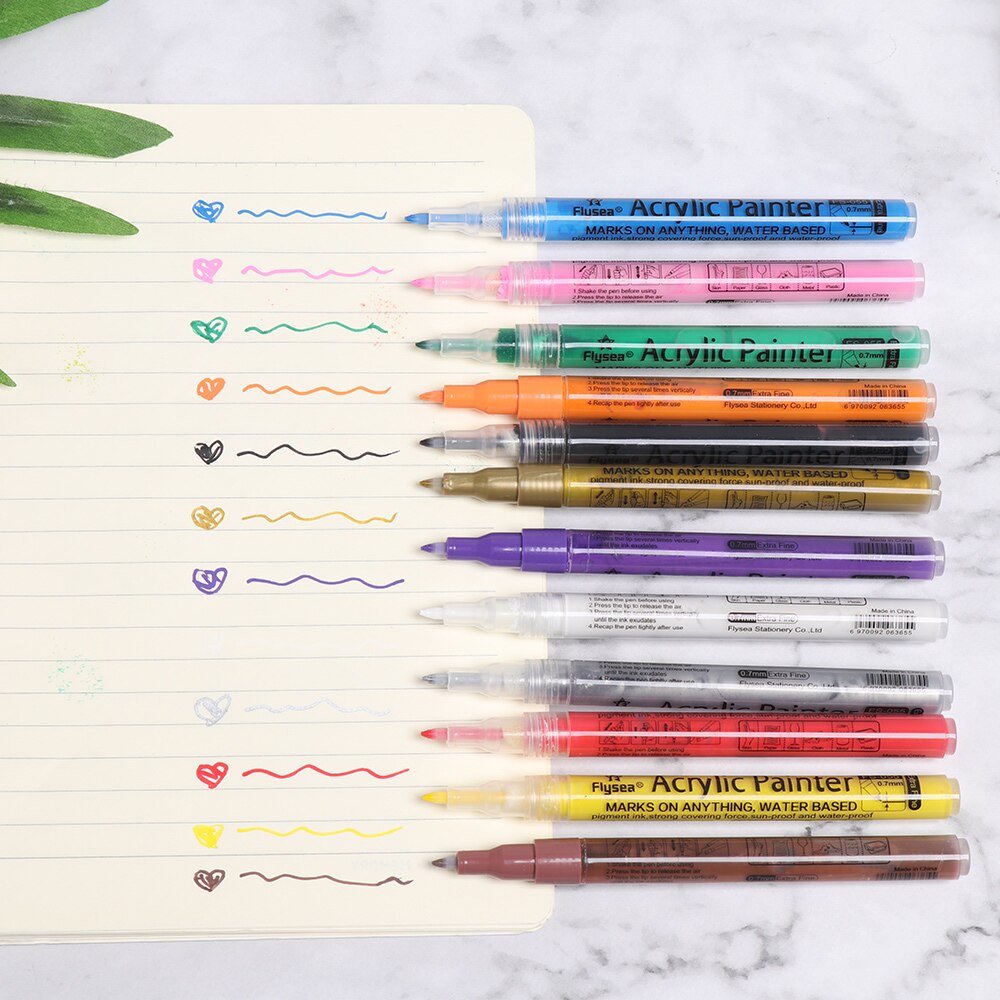 Flysea® Acrylic Painter
0.7mm
MARKS ON ANYTHING, WATER BASED
pigment ink,strong covering force,sun-proof and water-proof
Skin Paper Glass Cloth Metal Plastic
1.Shake the pen before using
Made in China
2.Press the tip to release the air
Flysea® Acrylic Painter
0.7mm
2.Press the tip to release the air
3.Press the tip several times vertically
until the ink exudates
4.Recap the pen tightly after use
0.7mm Extra Fine
Flysea Stationery Co.,Ltd
Made in China
6 970092 063655
Acrylic Painter
MARKS ON ANYTHING, WATER BASED
pigment ink,strong covering force sun-proof and water-proof
3.Press the tip several times vertically
until the ink exudates
0.7mm Extra Fine
Made in China
Acrylic Painter
1.Shake the pen before using
2.Press the tip to release the air
3.Press the tip several times vertically
until the ink exudates
4.Recap the pen tightly after use
Extra Fine
Flysea Stationery Co.,Ltd
Made in China
6 970092 063655
3.Press the tip several times vertically
until the ink exudates
0.7mm Extra Fine
Flysea Stationery Co.,Ltd
Made in China
Acrylic Painter
pigment ink,strong covering force,sun-proof and water-proof
1.Shake the pen before using
Skin Paper Glass Cloth Metal Plastic
Flysea® Acrylic Painter
0.7mm
MARKS ON ANYTHING, WATER BASED
pigment ink,strong covering force,sun-proof and water-proof
1.Shake the pen before using
2.Press the tip to release the air
3.Press the tip several times vertically
0.7mm Extra Fine
Made in China